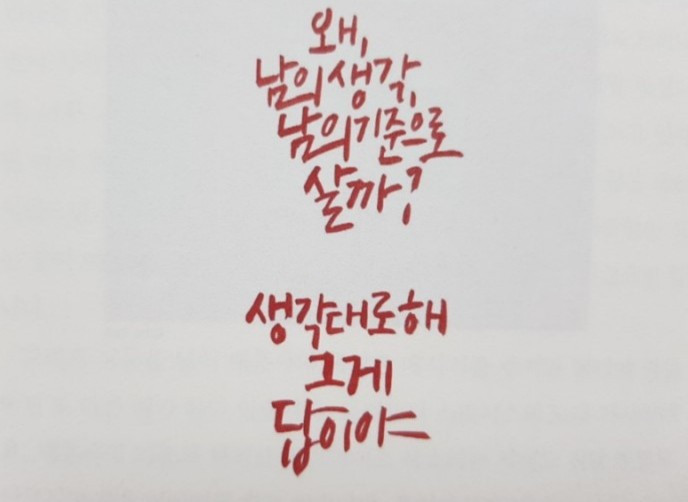 왜,
남의 생각,
남의 기준으로
살까?
생각대로 해
그게
답이야